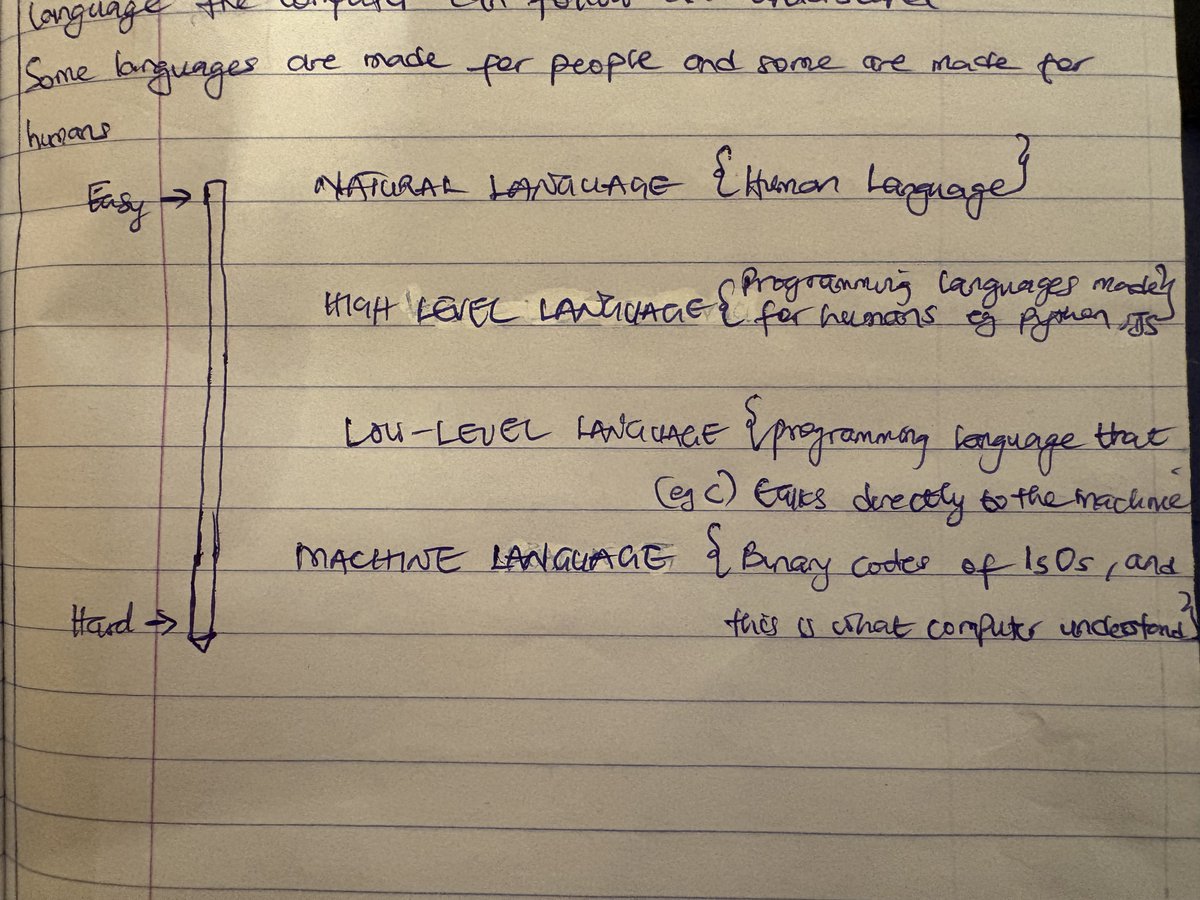 language the computer can follow
Some languages are made for people and some are made for
humans
Easy → NATURAL LANGUAGE {Human Language}
HIGH LEVEL LANGUAGE {Programming languages made
for humans eg Python, JS}
LOW-LEVEL LANGUAGE {programming language that
(eg C) talks directly to the machine
MACHINE LANGUAGE {Binary codes of 1s0s, and
Hard → this is what computer understand}